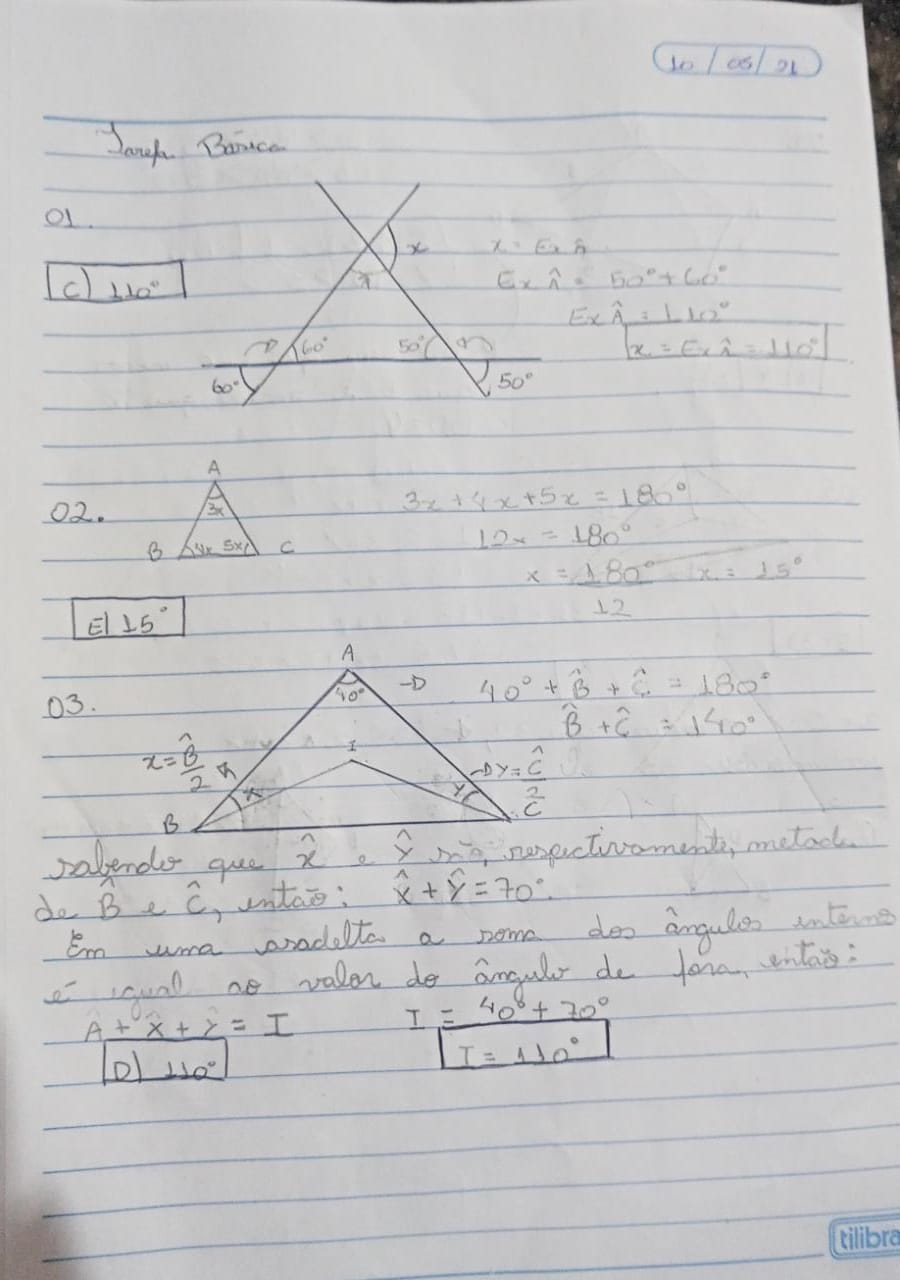 10/05/21
Tarefa Básica
01.
C) 110°
x
x = Ex Â
Ex Â = 50° + 60°
Ex Â = 110°
x = Ex Â = 110°
60°
50°
60°
50°
02.
A
3x
B
4x
5x
C
3x + 4x + 5x = 180°
12x = 180°
x = 180°
12
x = 15°
E) 15°
03.
A
40°
40° + B̂ + Ĉ = 180°
B̂ + Ĉ = 140°
I
x = B̂
2
x
y
y = Ĉ
2
B
C
sabendo que x̂ e ŷ são, respectivamente, metade
de B̂ e Ĉ, então: x̂ + ŷ = 70°.
Em uma asadelta a soma dos ângulos interno
é igual ao valor do ângulo de fora, então:
Â + x̂ + ŷ = I
I = 40° + 70°
I = 110°
D) 110°
tilibra